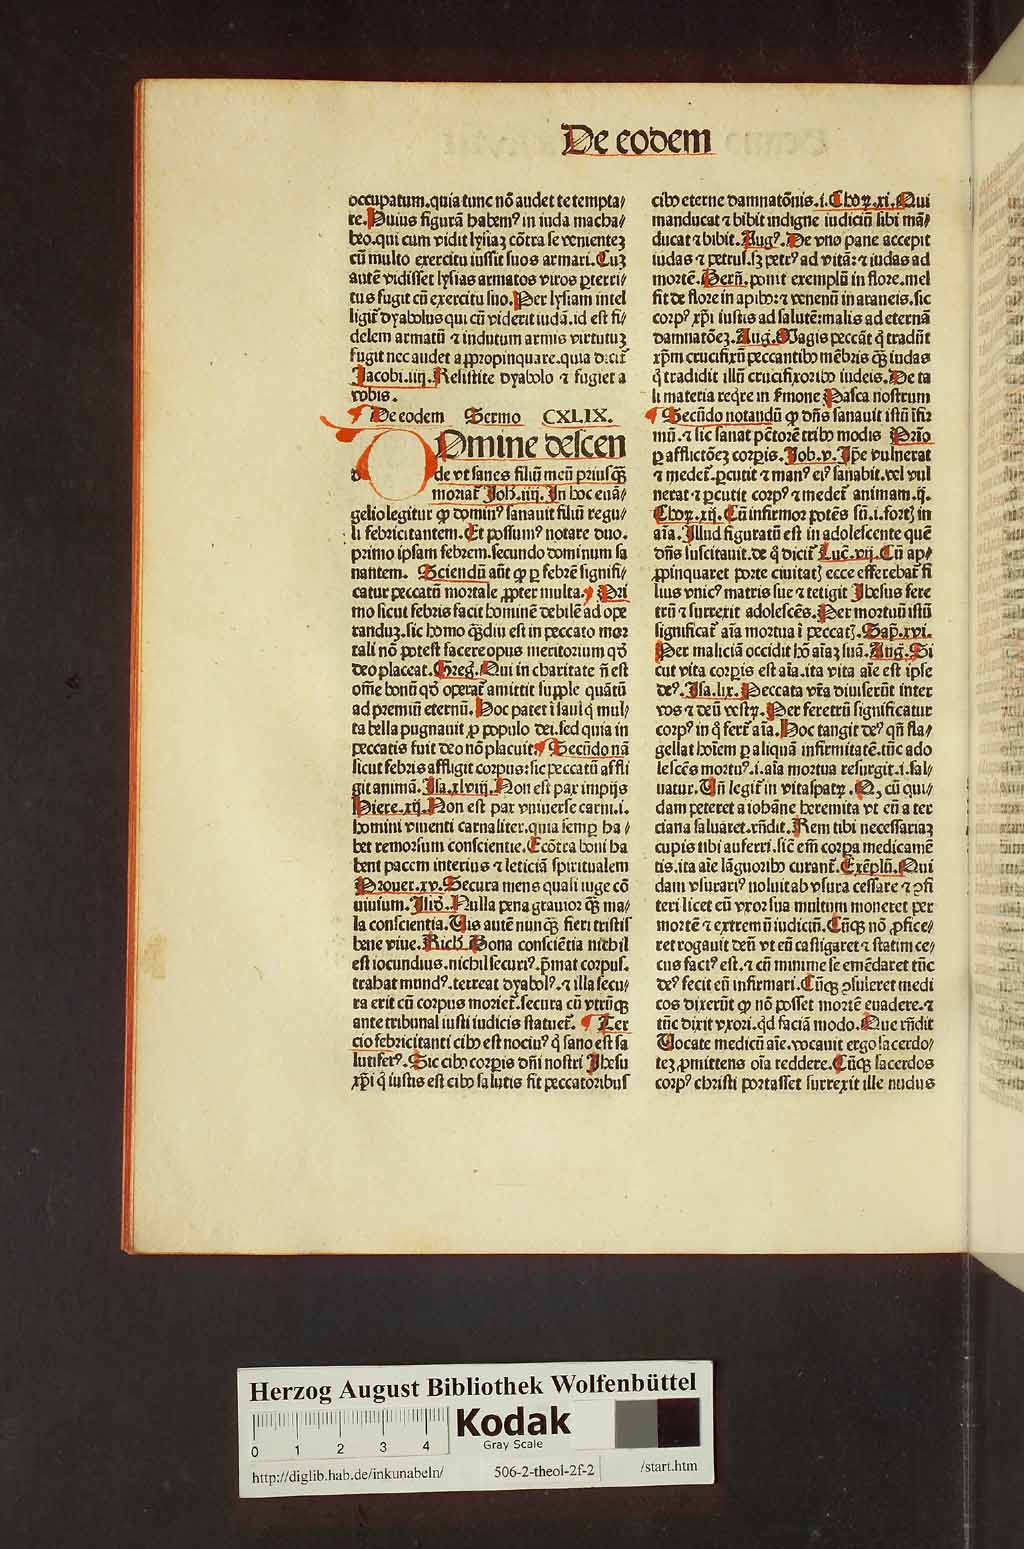 De eodem
occupatum.quia tunc nõ audet te tempta/
re.Huius figurã habemꝰ in iuda macha/
beo.qui cum vidit lysiaꝫ cõtra se venienteꝫ
cũ multo exercitu iussit suos armari.Cuꝫ
autẽ vidisset lysias armatos viros ꝑterri/
tus fugit cũ exercitu suo.Per lysiam intel
ligit᷑ dyabolus qui cũ viderit iudã.id est fi/
delem armatũ ⁊ indutum armis virtutuꝫ
fugit nec audet appropinquare.quia dicit᷑
Jacobi.iiij.Resistite dyabolo ⁊ fugiet a
vobis.
De eodem Sermo CXLIX.
DOmine descen
de vt sanes filiũ meũ priusꝙ̃
moriat᷑ Joh̃.iiij.In hoc euã/
gelio legitur ꝙ dominꝰ sanauit filiũ regu/
li febricitantem.Et possumꝰ notare duo.
primo ipsam febrem.secundo dominum sa
nantem. Sciendũ aũt ꝙ ꝑ febrẽ signifi/
catur peccatũ mortale ꝓpter multa. Pri
mo sicut febris facit hominẽ debilẽ ad ope
randuꝫ.sic homo ꝙ̃diu est in peccato mor
tali nõ potest facere opus meritorium qð
deo placeat.Greg̃.Qui in charitate ñ est
om̃e bonũ qð operat᷑ amittit supple quãtũ
ad premiũ eternũ.Hoc patet ĩ saul q̇ mul/
ta bella pugnauit ꝓ populo dei.sed quia in
peccatis fuit deo nõ placuit. Secũdo nã
sicut febris affligit corpus:sic peccatũ affli
git animã.Isa.xlviij.Non est pax impijs
Hiere.xij.Non est pax vniuerse carni.i.
homini viuenti carnaliter.quia semꝑ ha/
bet remorsum conscientie.Ecõtra boni ha
bent pacem interius ⁊ leticiã spiritualem
Prouer.xv.Secura mens quasi iuge cõ
uiuium.Isið.Nulla pena grauior ꝙ̃ ma/
la conscientia.Uis autẽ nunꝙ̃ fieri tristis
bene viue.Rich̃.Bona consciẽtia nichil
est iocundius.nichil securiꝰ.p̃mat corpus.
trahat mundꝰ.terreat dyabolꝰ.⁊ illa secu/
ra erit cũ corpus moriet᷑.secura cũ vtrũꝙ
ante tribunal iusti iudicis statuet᷑. Ter
cio febricitanti cibꝰ est nociuꝰ q̇ sano est sa
lutiferꝰ.Sic cibꝰ corꝑis dñi nostri Jhesu
xp̃i q̇ iustis est cibꝰ salutis fit peccatoribus
cibꝰ eterne damnatõnis.i.Choꝝ.xi.Qui
manducat ⁊ bibit indigne iudiciũ sibi mã/
ducat ⁊ bibit.Augꝰ.De vno pane accepit
iudas ⁊ petrus.sꝫ petrꝰ ad vitã:⁊ iudas ad
mortẽ.Berñ.ponit exemplũ in flore.mel
fit de flore in apibꝰ:⁊ venenũ in araneis.sic
corpꝰ xp̃i iustis ad salutẽ:malis ad eternã
damnatõeꝫ.Aug.Magis peccãt q̇ tradũt
xp̃m crucifixũ peccantibꝰ mẽbris ꝙ̃ iudas
q̇ tradidit illũ crucifixoribꝰ iudeis.De ta
li materia req̇re in s̃mone Pasca nostrum
Secũdo notandũ ꝙ dñs sanauit istũ ĩfir
mũ.⁊ sic sanat pc̃torẽ tribꝰ modis Primo
ꝑ afflictõeꝫ corꝑis.Job.v.Ip̃e vulnerat
⁊ medet᷑.ꝑcutit ⁊ manꝰ eiꝰ sanabit.vel vul
nerat ⁊ ꝑcutit corpꝰ ⁊ medet᷑ animam.ij.
Choꝝ.xij.Cũ infirmor potẽs sũ.i.fort in
aĩa.Illud figuratũ est in adolescente quẽ
dñs suscitauit.de q̇ dicit᷑ Luc̃.vij.Cũ ap/
ꝓpinquaret porte ciuitat ecce efferebat᷑ fi
lius vnicꝰ matris sue ⁊ tetigit Jhesus fere
trũ ⁊ surrexit adolescẽs.Per mortuũ istũ
significat᷑ aĩa mortua ĩ peccat.Sap̃.xvi.
Per maliciã occidit hõ aĩaꝫ suã.Aug.Si
cut vita corꝑis est aĩa.ita vita aĩe est ipse
deꝰ.Isa.lix.Peccata vr̃a diuiserũt inter
vos ⁊ deũ vestꝝ.Per feretrũ significatur
corpꝰ in q̇ fert᷑ aĩa.Hoc tangit deꝰ qñ fla/
gellat hoĩem ꝑ aliquã infirmitatẽ.tũc ado
lescẽs mortuꝰ.i.aĩa mortua resurgit.i.sal/
uatur.Uñ legit᷑ in vitaspatꝝ.Q, cũ qui/
dam peteret a iohãne heremita vt eũ a ter
ciana saluaret.rñdit.Rem tibi necessariaꝫ
cupis tibi auferri.sic̃ em̃ corꝑa medicamẽ
tis.ita aĩe lãguoribꝰ curant᷑.Exẽplũ.Qui
dam vsurariꝰ noluit ab vsura cessare ⁊ ꝯfi
teri licet eũ vxor sua multum moneret per
mortẽ ⁊ extremũ iudiciũ.Cũꝙ nõ ꝓfice/
ret rogauit deũ vt eũ castigaret ⁊ statim ce/
cus factꝰ est.⁊ cũ minime se emẽdaret tũc
deꝰ fecit eũ infirmari.Cũꝙ ꝯsuleret medi
cos dixerũt ꝙ nõ posset mortẽ euadere.⁊
tũc dixit vxori.q̇d faciã modo.Que rñdit
Uocate medicũ aĩe.vocauit ergo sacerdo/
teꝫ ꝓmittens oĩa reddere.Cũꝙ sacerdos
corpꝰ christi portasset surrexit ille nudus
Herzog August Bibliothek Wolfenbüttel
Kodak
Gray Scale
0 1 2 3 4
http://diglib.hab.de/inkunabeln/ 506-2-theol-2f-2 /start.htm